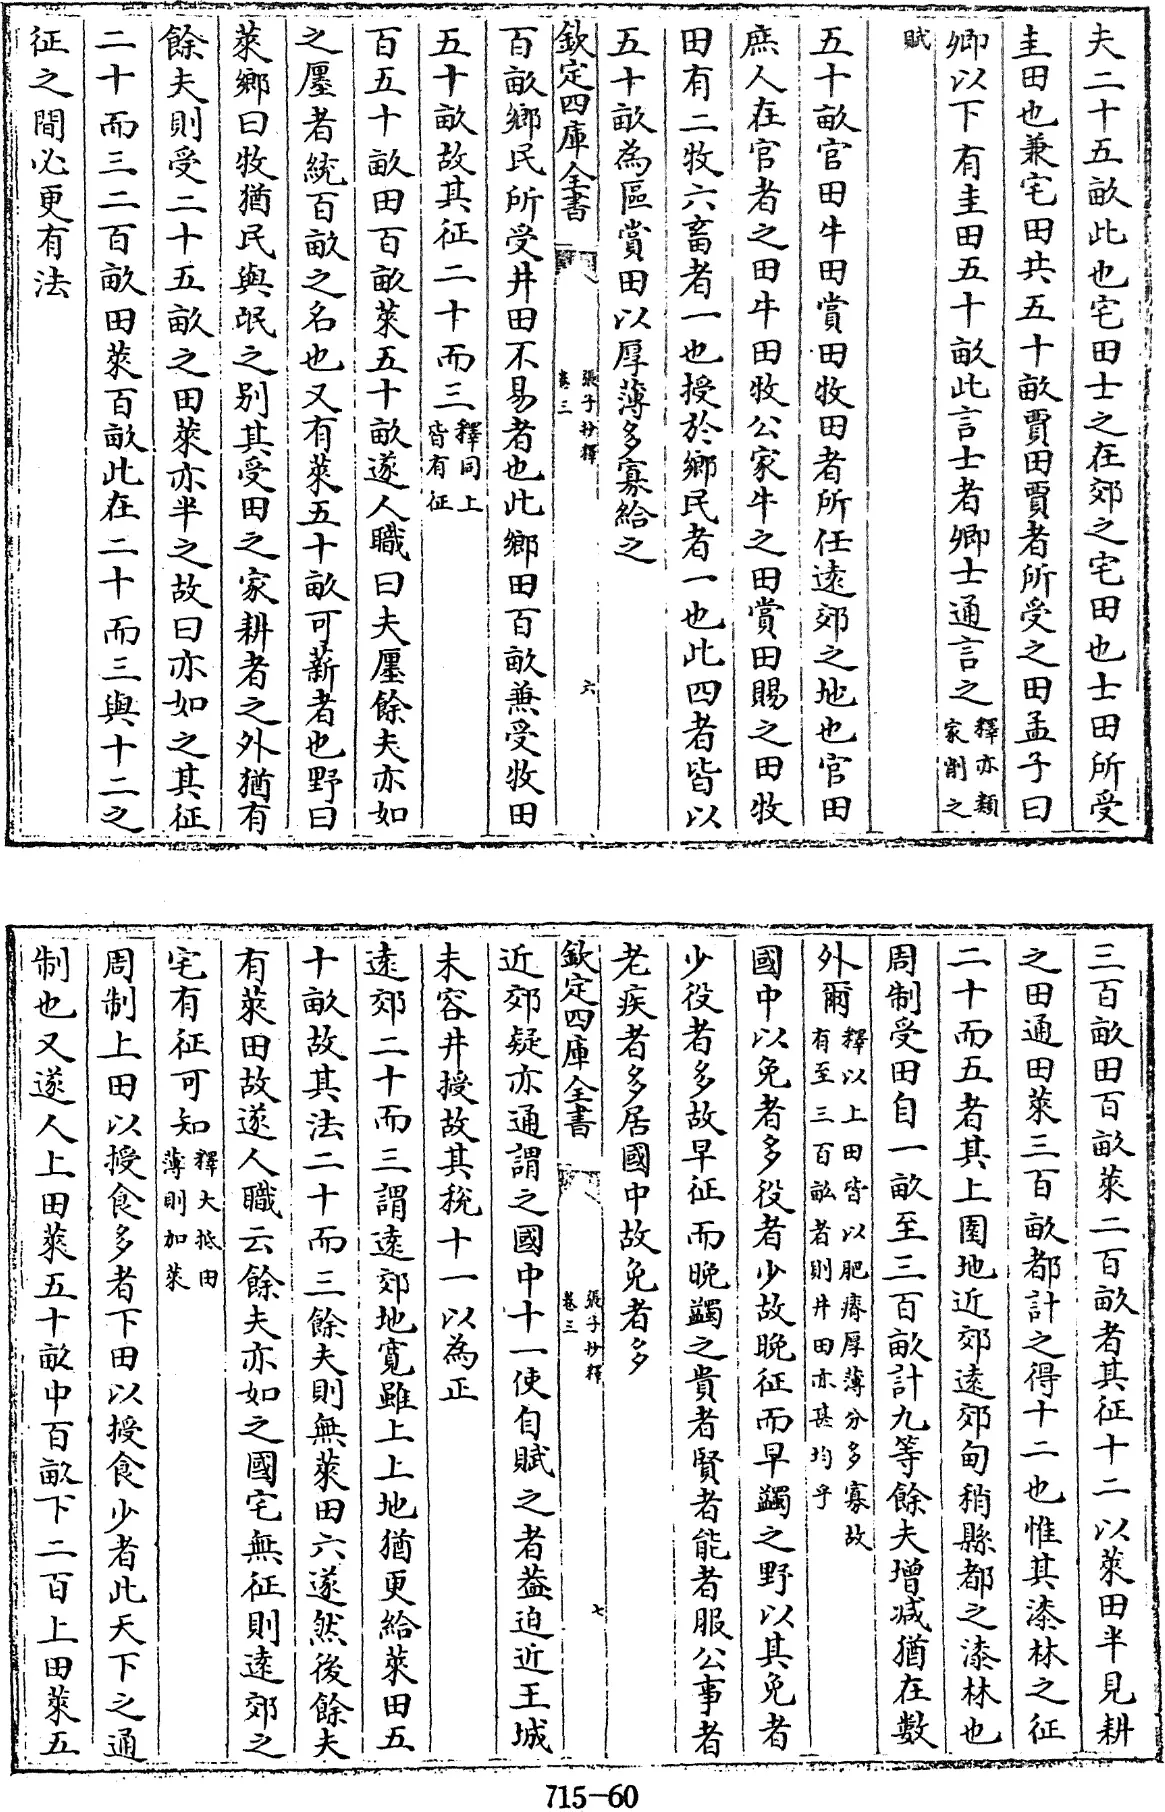 夫二十五畝此也宅田士之在郊之宅田也士田所受
圭田也兼宅田共五十畝賈田賈者所受之田孟子曰
卿以下有圭田五十畝此言士者卿士通言之釋亦類家削之
賦
五十畝官田牛田賞田牧田者所任逺郊之地也官田
庶人在官者之田牛田牧公家牛之田賞田賜之田牧
田有二牧六畜者一也授於鄉民者一也此四者皆以
五十畝為區賞田以厚薄多寡給之
欽定四庫全書 張子抄釋卷三 六
百畝鄉民所受井田不易者也此鄉田百畝兼受牧田
五十畝故其征二十而三釋同上皆有征
百五十畝田百畝萊五十畝遂人職曰夫廛餘夫亦如
之廛者統百畝之名也又有萊五十畝可薪者也野曰
萊鄉曰牧猶民與氓之别其受田之家耕者之外猶有
餘夫則受二十五畝之田萊亦半之故曰亦如之其征
二十而三二百畝田萊百畝此在二十而三與十二之
征之間必更有法
三百畝田百畝萊二百畝者其征十二以萊田半見耕
之田通田萊三百畝都計之得十二也惟其漆林之征
二十而五者其上園地近郊逺郊甸稍縣都之漆林也
周制受田自一畝至三百畝計九等餘夫增減猶在數
外爾釋以上田皆以肥瘠厚薄分多寡故有至三百畝者則井田亦甚均乎
國中以免者多役者少故晩征而早蠲之野以其免者
少役者多故早征而晩蠲之貴者賢者能者服公事者
老疾者多居國中故免者多
欽定四庫全書 張子抄釋卷三 七
近郊疑亦通謂之國中十一使自賦之者葢迫近王城
未容井授故其稅十一以為正
逺郊二十而三謂逺郊地寛雖上上地猶更給萊田五
十畝故其法二十而三餘夫則無萊田六遂然後餘夫
有萊田故遂人職云餘夫亦如之國宅無征則逺郊之
宅有征可知釋大抵田薄則加萊
周制上田以授食多者下田以授食少者此天下之通
制也又遂人上田萊五十畝中百畝下二百上田萊五
715-60